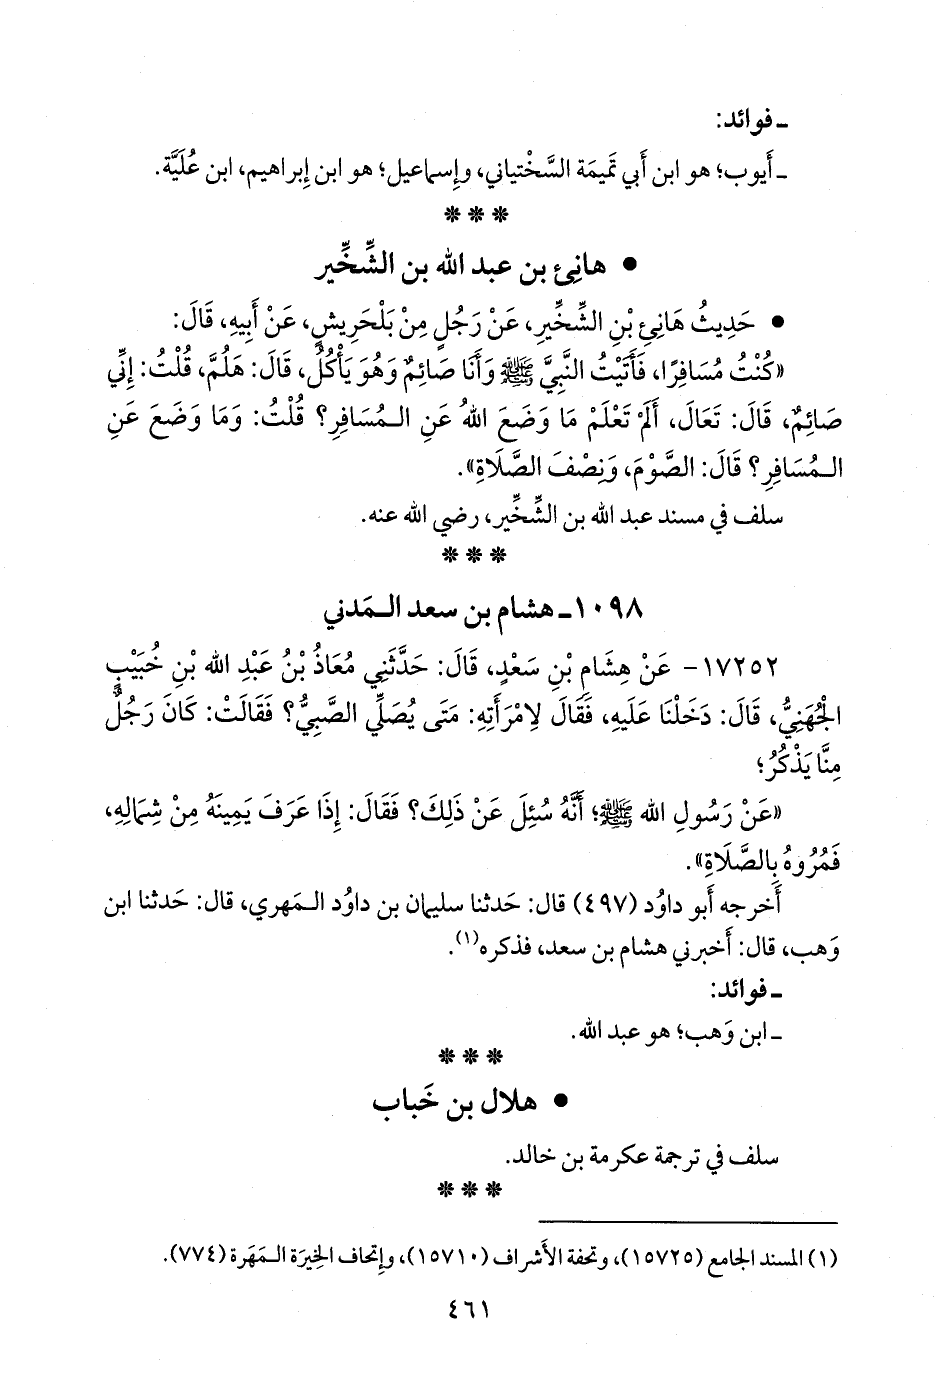 ـ فوائد:
ـ أَيوب؛ هو ابن أَبي تَميمَة السَّختياني، وإِسماعيل؛ هو ابن إِبراهيم، ابن عُلَيَّة.
* * *
• هانِئ بن عبد الله بن الشِّخِّير
• حَدِيثُ هَانِئِ بْنِ الشِّخِّيرِ، عَنْ رَجُلٍ مِنْ بَلْحَرِيشٍ، عَنْ أَبِيهِ، قَالَ:
«كُنْتُ مُسَافِرًا، فَأَتَيْتُ النَّبِيَّ ﷺ وَأَنَا صَائِمٌ وَهُوَ يَأْكُلُ، قَالَ: هَلُمَّ، قُلْتُ: إِنِّي
صَائِمٌ، قَالَ: تَعَالَ، أَلَمْ تَعْلَمْ مَا وَضَعَ اللهُ عَنِ الـمُسَافِرِ؟ قُلْتُ: وَمَا وَضَعَ عَنِ
الـمُسَافِرِ؟ قَالَ: الصَّوْمَ، وَنِصْفَ الصَّلَاةِ».
سلف في مسند عبد الله بن الشِّخِّير، رضي الله عنه.
* * *
١٠٩٨ ـ هشام بن سعد الـمَدني
١٧٢٥٢ - عَنْ هِشَامِ بْنِ سَعْدٍ، قَالَ: حَدَّثَنِي مُعَاذُ بْنُ عَبْدِ الله بْنِ خُبَيْبٍ
الجُهَنِيُّ، قَالَ: دَخَلْنَا عَلَيهِ، فَقَالَ لِامْرَأَتِهِ: مَتَى يُصَلِّي الصَّبِيُّ؟ فَقَالَتْ: كَانَ رَجُلٌ
مِنَّا يَذْكُرُ؛
«عَنْ رَسُولِ الله ﷺ؛ أَنَّهُ سُئِلَ عَنْ ذَلِكَ؟ فَقَالَ: إِذَا عَرَفَ يَمِينَهُ مِنْ شِمَالِهِ،
فَمُرُوهُ بِالصَّلَاةِ».
أَخرجه أَبو داوُد (٤٩٧) قال: حَدثنا سليمان بن داوُد الـمَهري، قال: حَدثنا ابن
وَهب، قال: أَخبرني هشام بن سعد، فذكره(١).
ـ فوائد:
ـ ابن وَهب؛ هو عبد الله.
* * *
• هلال بن خَباب
سلف في ترجمة عكرمة بن خالد.
* * *
(١) المسند الجامع (١٥٧٢٥)، وتحفة الأَشراف (١٥٧١٠)، وإِتحاف الخِيرَة الـمَهَرة (٧٧٤).
٤٦١